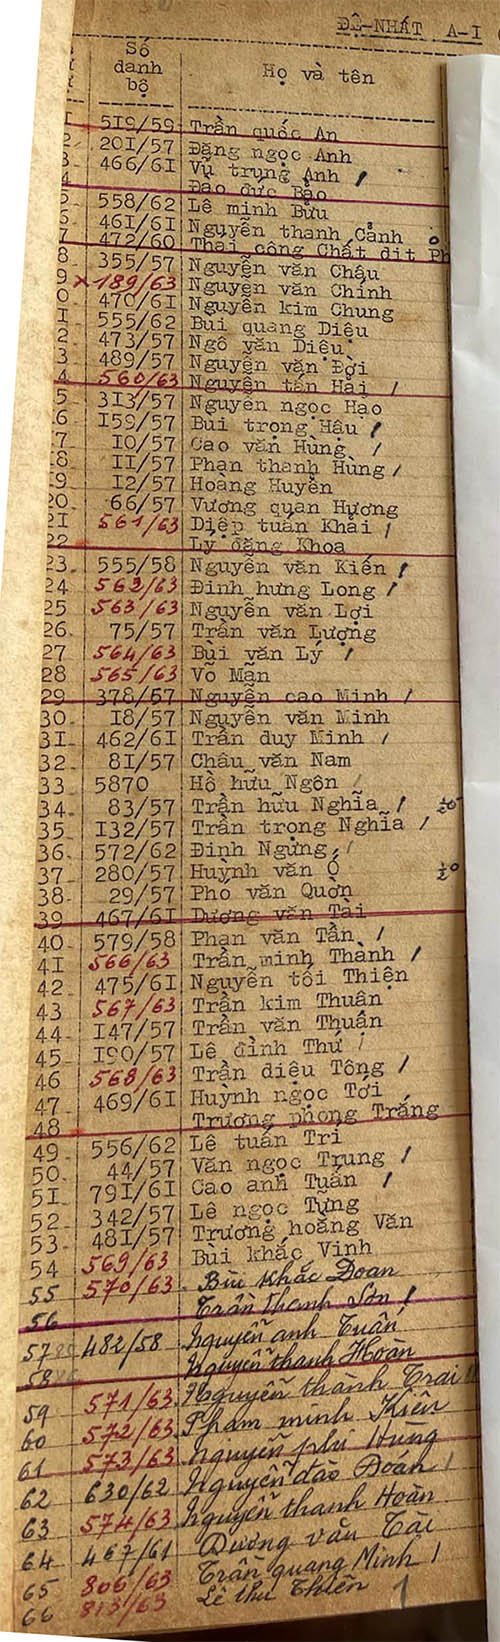 ĐỆ-NHẤT A-I
Số danh bộ Họ và tên
519/59 Trần quốc An
201/57 Đặng ngọc Anh
466/61 Vũ trung Anh
Đào đức Bảo
558/62 Lê minh Bửu
461/61 Nguyễn thanh Cảnh
472/60 Thái công Chất dit Ph
8 355/57 Nguyễn văn Châu
9 x 189/63 Nguyễn văn Chính
0 470/61 Nguyễn kim Chung
I 555/62 Bùi quang Diệu
2 473/57 Ngô văn Diệu
3 489/57 Nguyễn văn Đời
4 560/63 Nguyễn tấn Hải
5 313/57 Nguyễn ngọc Hạo
6 159/57 Bùi trọng Hậu
7 10/57 Cao văn Hùng
8 11/57 Phan thanh Hùng
9 12/57 Hoàng Huyền
20. 66/57 Vương quan Hương
21 561/63 Diệp tuấn Khải
22 Lý đăng Khoa
23. 555/58 Nguyễn văn Kiến
24 562/63 Đinh hưng Long
25 563/63 Nguyễn văn Lợi
26. 75/57 Trần văn Lượng
27 564/63 Bùi văn Lý
28 565/63 Võ Mẫn
29 378/57 Nguyễn cao Minh
30. 18/57 Nguyễn văn Minh
31. 462/61 Trần duy Minh
32. 81/57 Châu văn Nam
33. 5870 Hồ hữu Ngôn
34. 83/57 Trần hữu Nghĩa
35. 132/57 Trần trọng Nghĩa
36. 572/62 Đinh Ngưng
37. 280/57 Huỳnh văn Ổ
38. 29/57 Phó văn Quơn
39 467/61 Dương văn Tài
40. 579/58 Phan văn Tần
41 566/63 Trần minh Thành
42. 475/61 Nguyễn tôi Thiện
43 567/63 Trần kim Thuân
44. 147/57 Trần văn Thuận
45. 190/57 Lê đình Thứ
46 568/63 Trần diệu Tông
47. 469/61 Huỳnh ngọc Tới
48 Trương phong Trắng
49. 556/62 Lê tuấn Trí
50. 44/57 Văn ngọc Trung
51. 791/61 Cao anh Tuấn
52. 342/57 Lê ngọc Tựng
53. 481/57 Trương hoàng Văn
54 569/63 Bùi khắc Vinh
55 570/63 Bùi khắc Đoan
56 Trần thanh Sơn
57 482/58 Nguyễn anh Tuấn
58 Nguyễn thanh Hoàn
59 571/63 Nguyễn thành Trai
60 572/63 Phạm minh Kiên
61 573/63 Nguyễn phi Hùng
62 630/62 Nguyễn đào Đoàn
63 574/63 Nguyễn thanh Hoàn
64 467/61 Dương văn Tài
65 806/63 Trần quang Minh
66 813/63 Lê thu Thiên